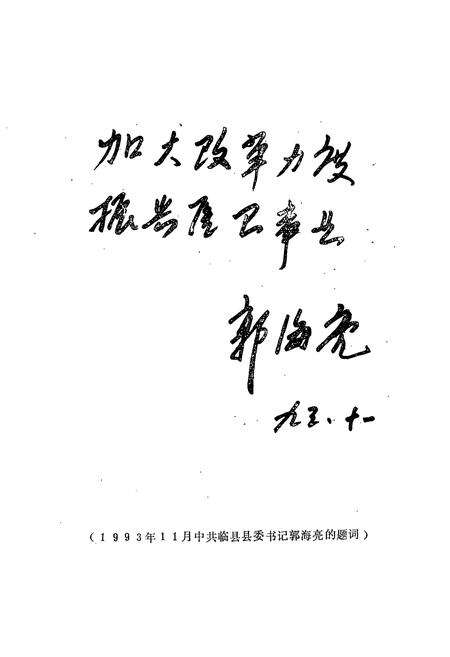 加大改革力度
振兴医卫事业
郭海亮
九三.十一
(1993年11月中共临县县委书记郭海亮的题词)